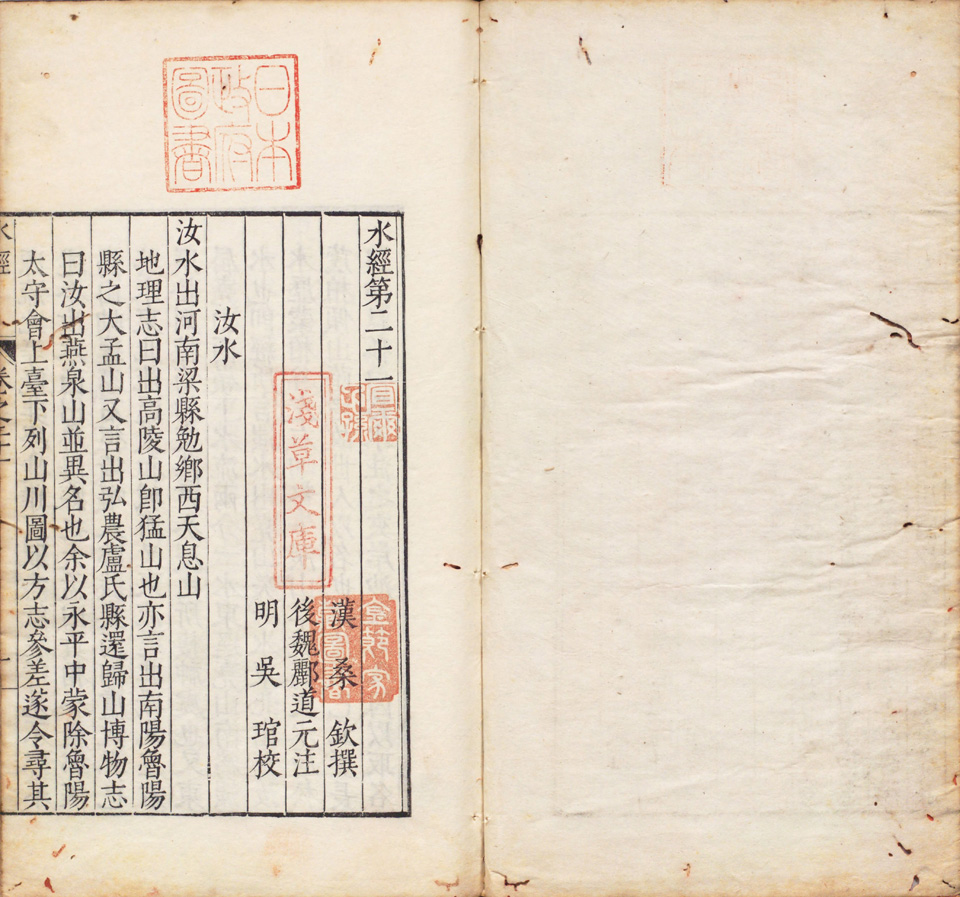 水經第二十一
漢 桑 欽撰
後魏酈道元注
明 吳 琯校
汝水
汝水出河南梁縣勉鄉西天息山
地理志曰出高陵山卽猛山也亦言出南陽魯陽
縣之大盂山又言出弘農盧氏縣還歸山博物志
曰汝出燕泉山並異名也余以永平中蒙除魯陽
太守會上臺下列山川圖以方志參差遂令尋其
水經
卷之二十一
日本
政府
圖書
淺草文庫